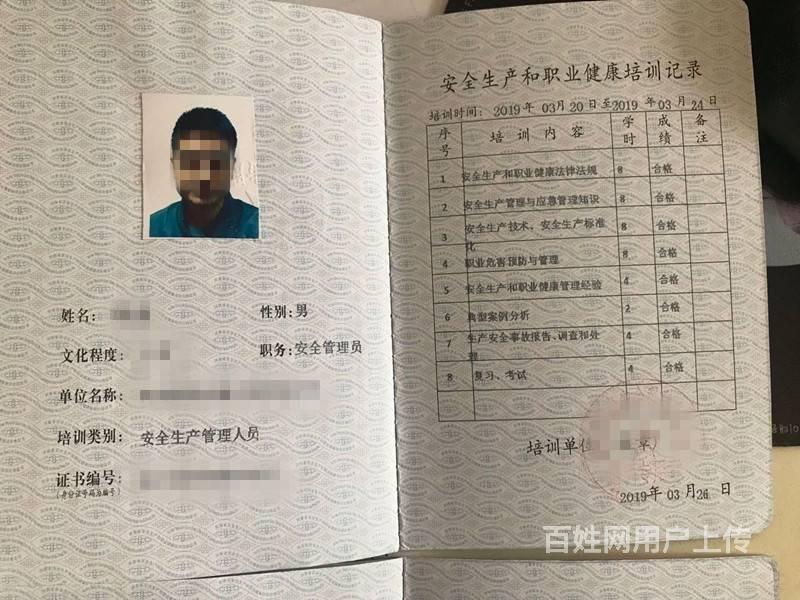 姓名：
性别：男
文化程度：
职务：安全管理员
单位名称：
培训类别： 安全生产管理人员
证书编号：
（身份证号码为编号）
安全生产和职业健康培训记录
培训时间： 2019年 03月20日至2019年03月24日
序号 培训内容 学时 成绩 备注
1 安全生产和职业健康法律法规 8 合格
2 安全生产管理与应急管理知识 8 合格
3 安全生产技术、安全生产标准化 8 合格
4 职业危害预防与管理 8 合格
5 安全生产和职业健康管理经验 4 合格
6 典型案例分析 2 合格
7 生产安全事故报告、调查和处理 4 合格
8 复习、考试 4 合格
培训单位
章）
2019年 03月26日
百姓网用户上传